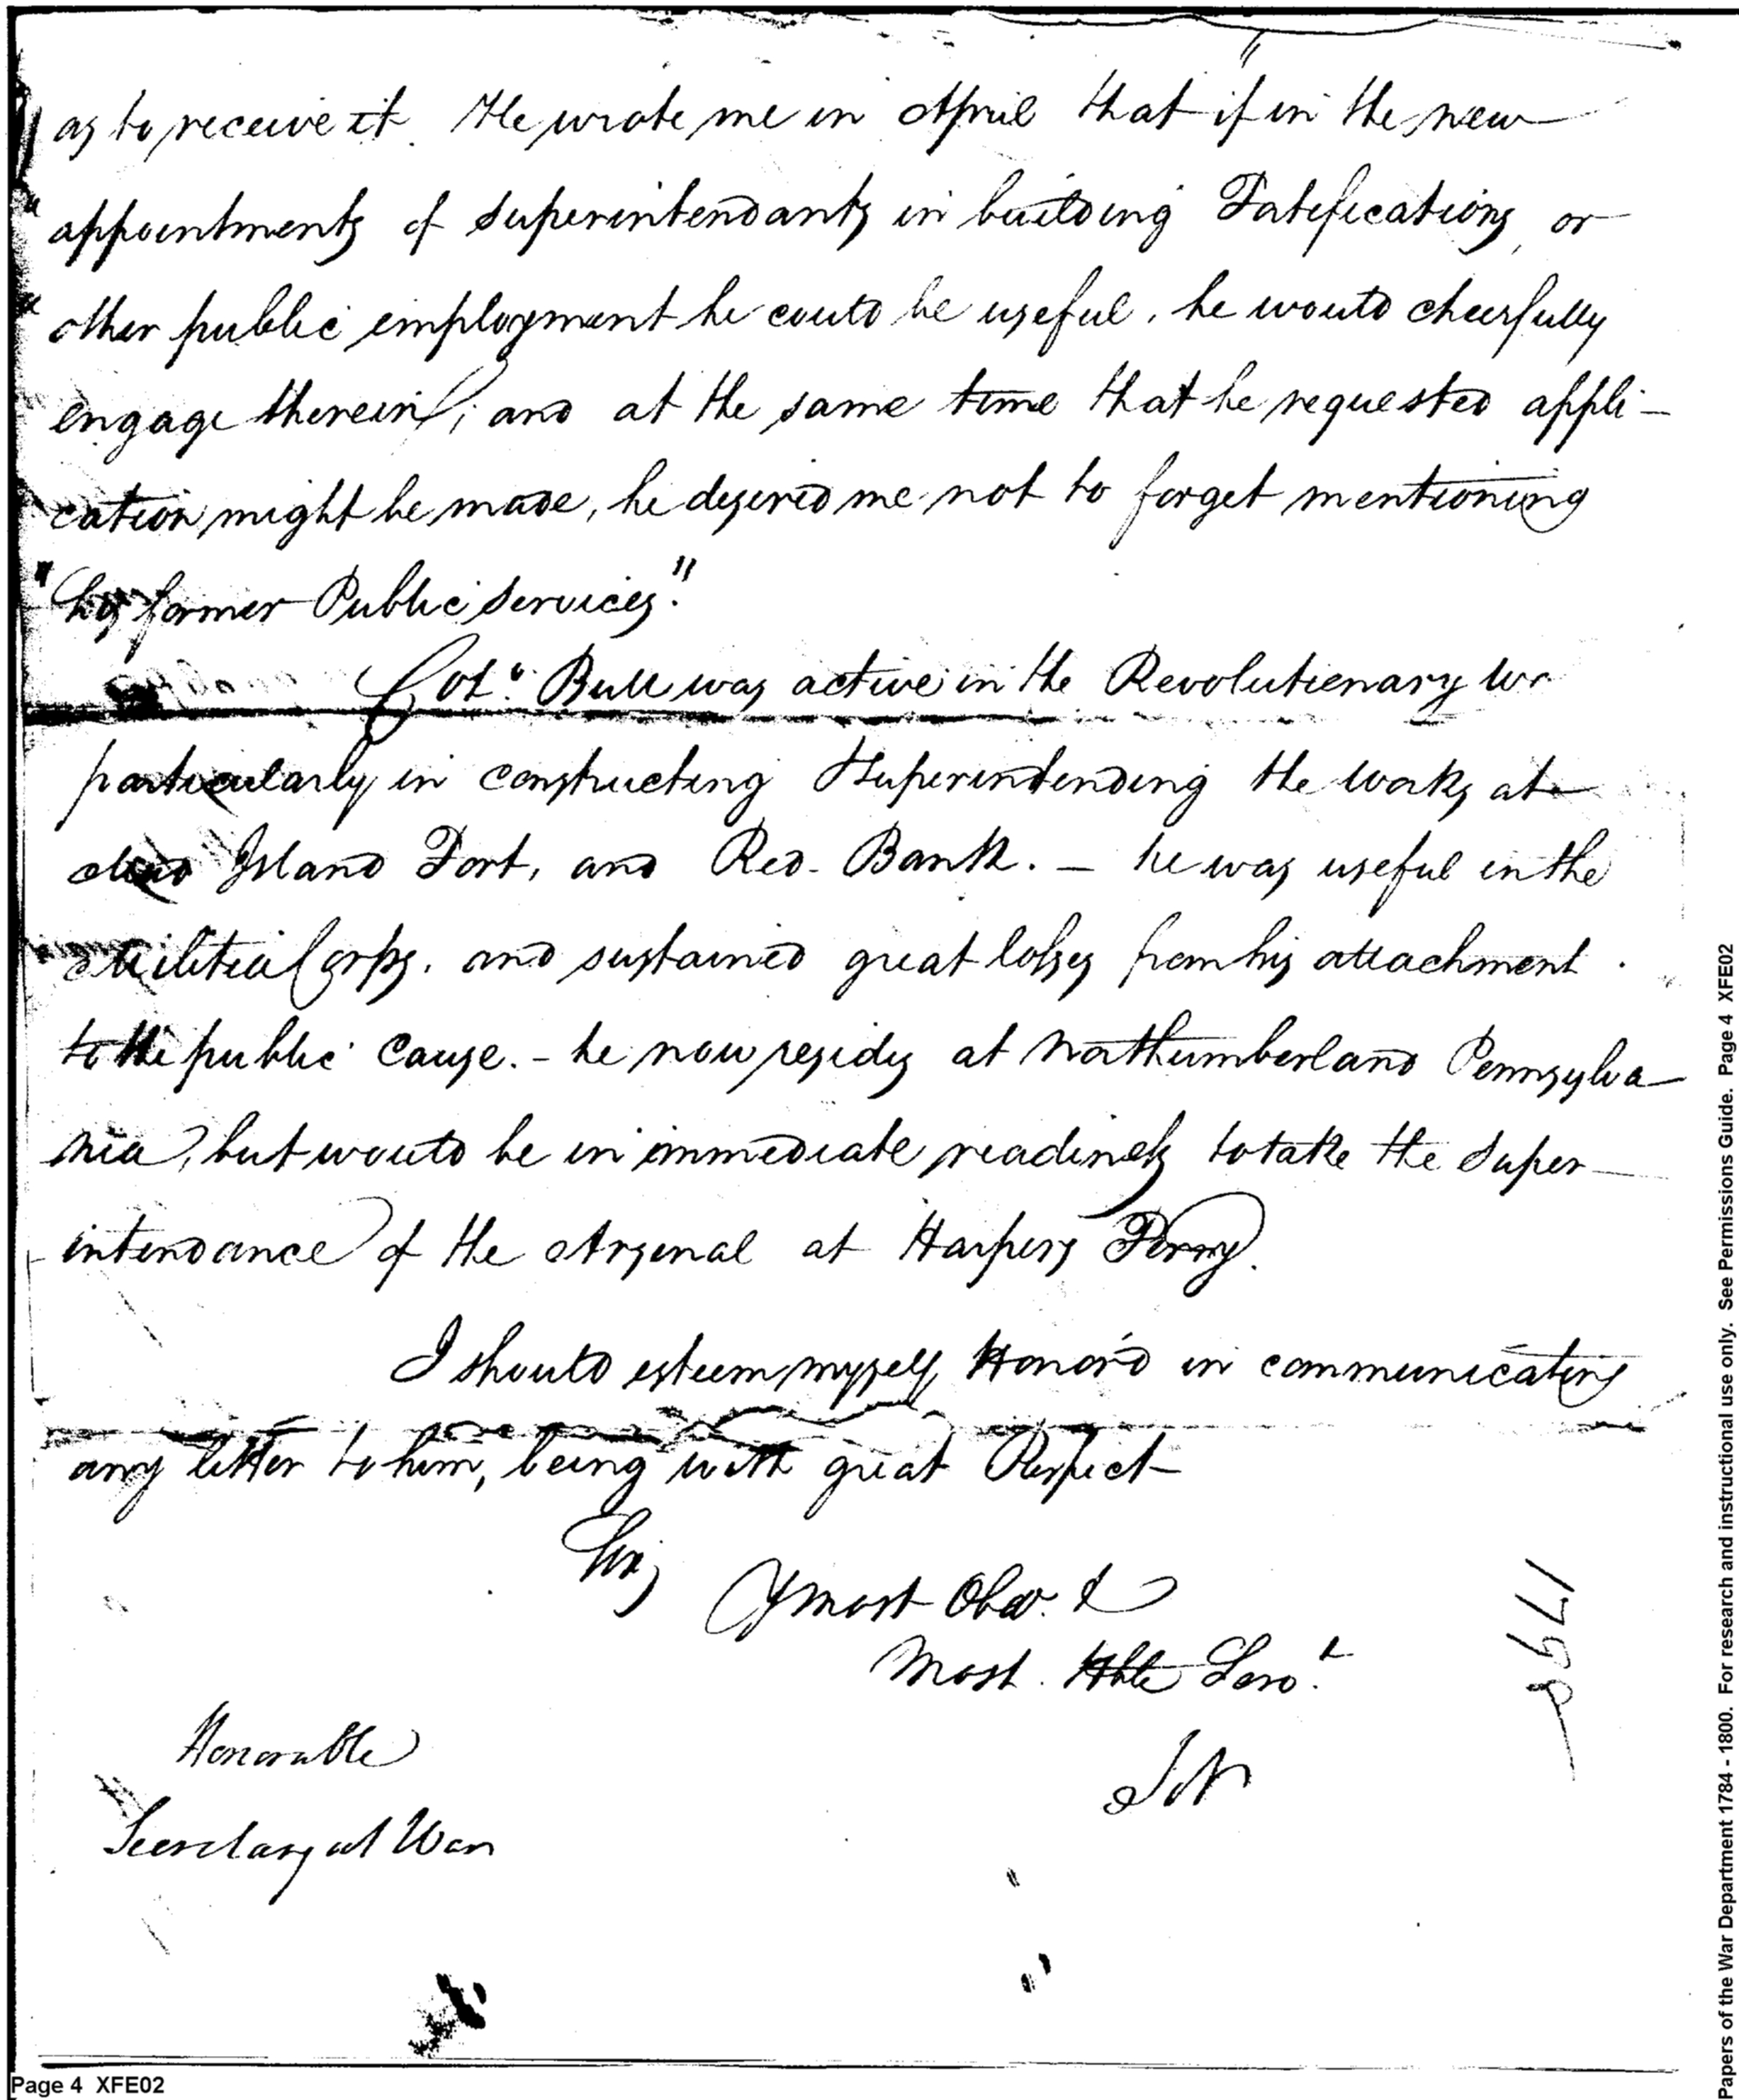 as to receive it. He wrote me in April that "if in the new
"appointments of Superintendants in building Fortifications, or
"other public employment he could be useful, he would cheerfully
engage therein; and at the same time that he requested appli-
cation might be made, he desired me not to forget mentioning
"his former Public Services."
Col.o Bull was active in the Revolutionary
particularly in constructing & superintending the works at
Mud Island Fort, and Red-Bank. - he was useful in the
Militia Corps, and sustained great losses from his attachment
to the public Cause. - he now resides at Northumberland Pennsylva
nia, but would be in immediate readiness to take the Super-
intendance of the Arsenal at Harpers Ferry.
I should esteem myself Honor'd in communicating
any letter to him, being with great Respect
Sir,
Y most Obed. &
Most. Hble Serv.t
Honorable
Secretary at War
1799
Page 4 XFE02
Papers of the War Department 1784 - 1800. For research and instructional use only. See Permissions Guide. Page 4 XFE02